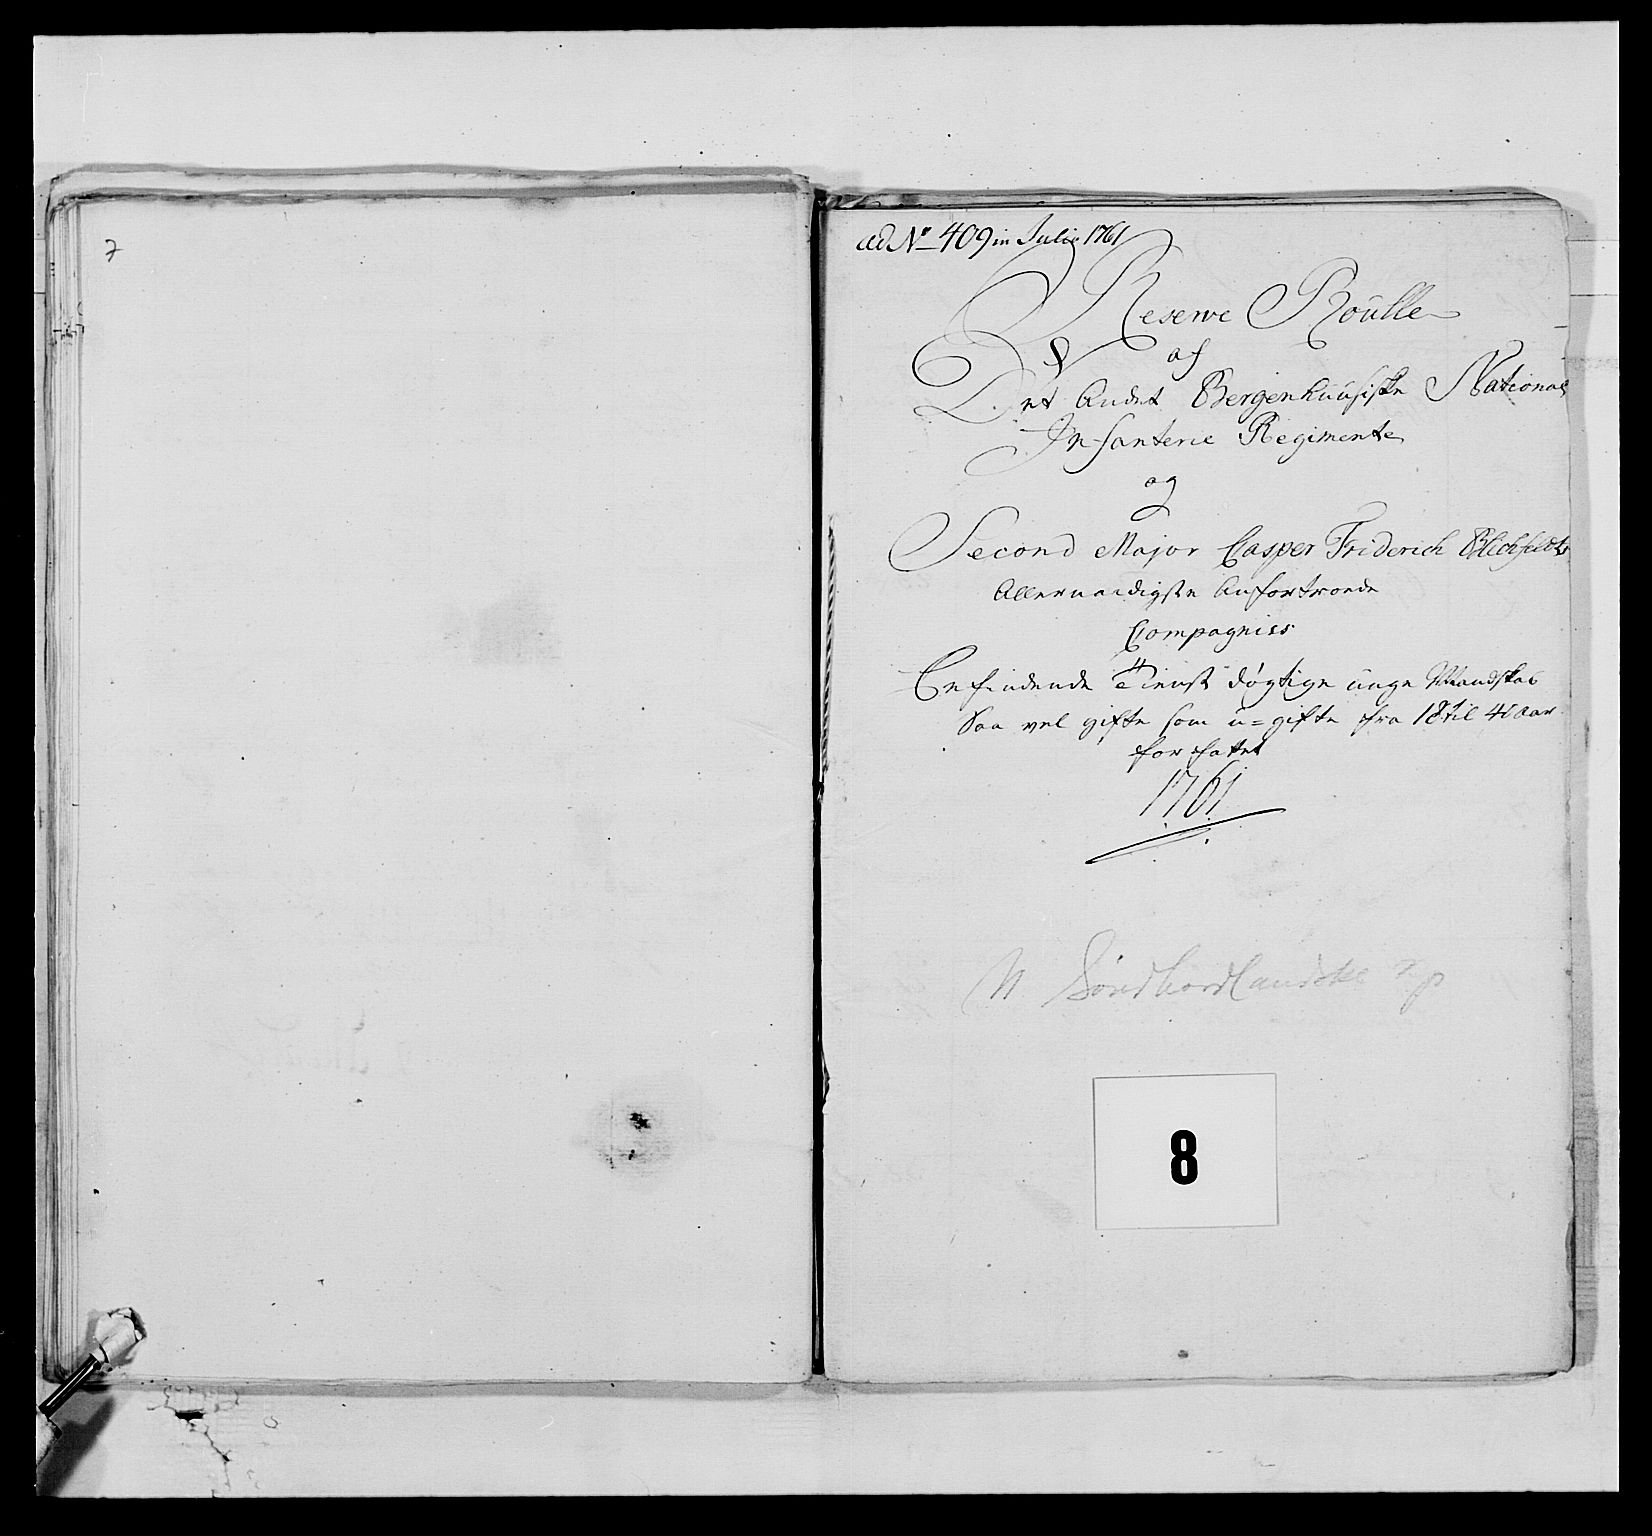 7
ad No 409 in Julio 1761
Reserve Roulle
af
Det Andet Bergenhuusiske National
Infanterie Regimente
og
Second Major Casper Friderich Blichfeldts
Allernaadigste Anfortroede
Compagnies
Befindende Tienst dögtige unge Mandskab
Saa vel gifte som u=gifte fra 18 til 40 Aar
forfattet
1761
N Söndhordlandske
8